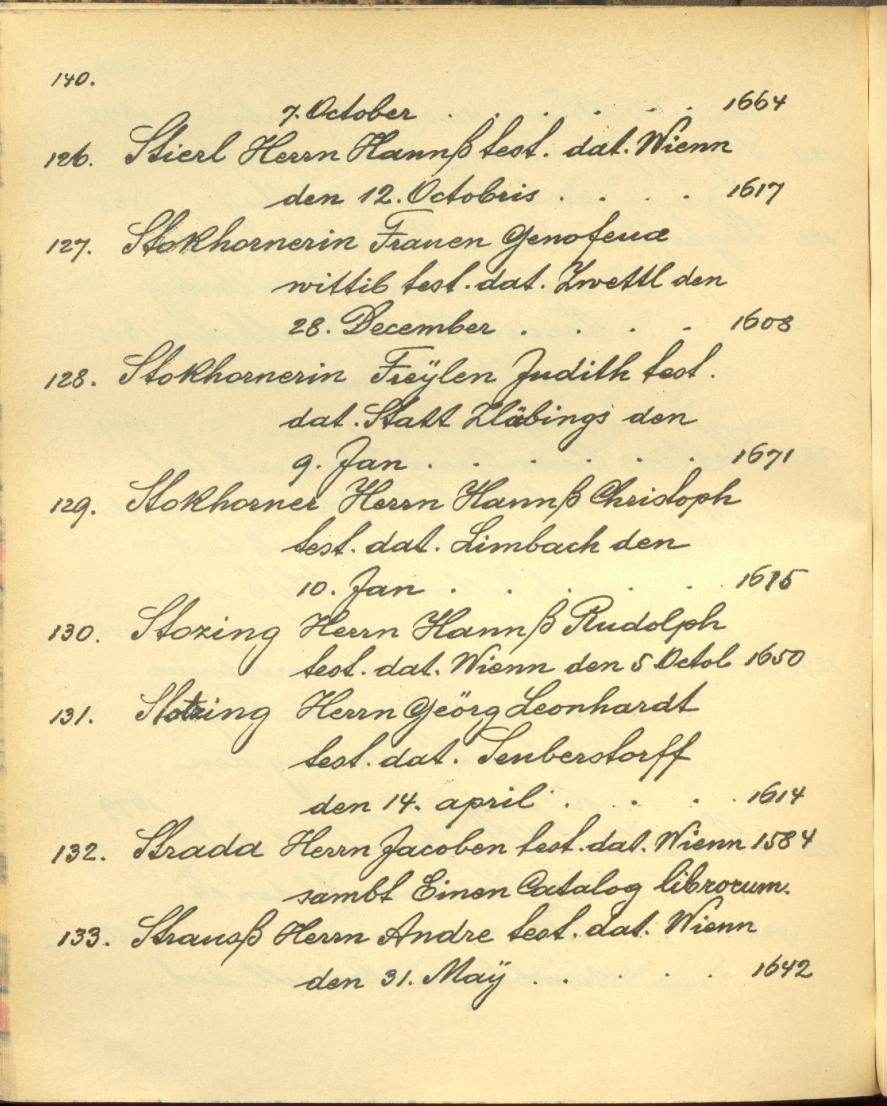 140.
7. October . . . . . . 1664
126. Stierl Herrn Hannß test. dat. Wienn
den 12. Octobris . . . . 1617
127. Stokhornerin Frauen Genofeuæ
wittib test. dat. Zwettl den
28. December . . . . 1608
128. Stokhornerin Freÿlen Judith test.
dat. Statt Zläbings den
9. Jan . . . . . . 1671
129. Stokhorner Herrn Hannß Christoph
test. dat. Limbach den
10. Jan . . . . . 1615
130. Stozing Herrn Hannß Rudolph
test. dat. Wienn den 5 Octol 1650
131. Stotzing Herrn Geörg Leonhardt
test. dat. Seuberstorff
den 14. april . . . . 1614
132. Strada Herrn Jacoben test. dat. Wienn 1584
sambt Einen Catalog librorum.
133. Strausß Herrn Andre test. dat. Wienn
den 31. Maÿ . . . . . 1642